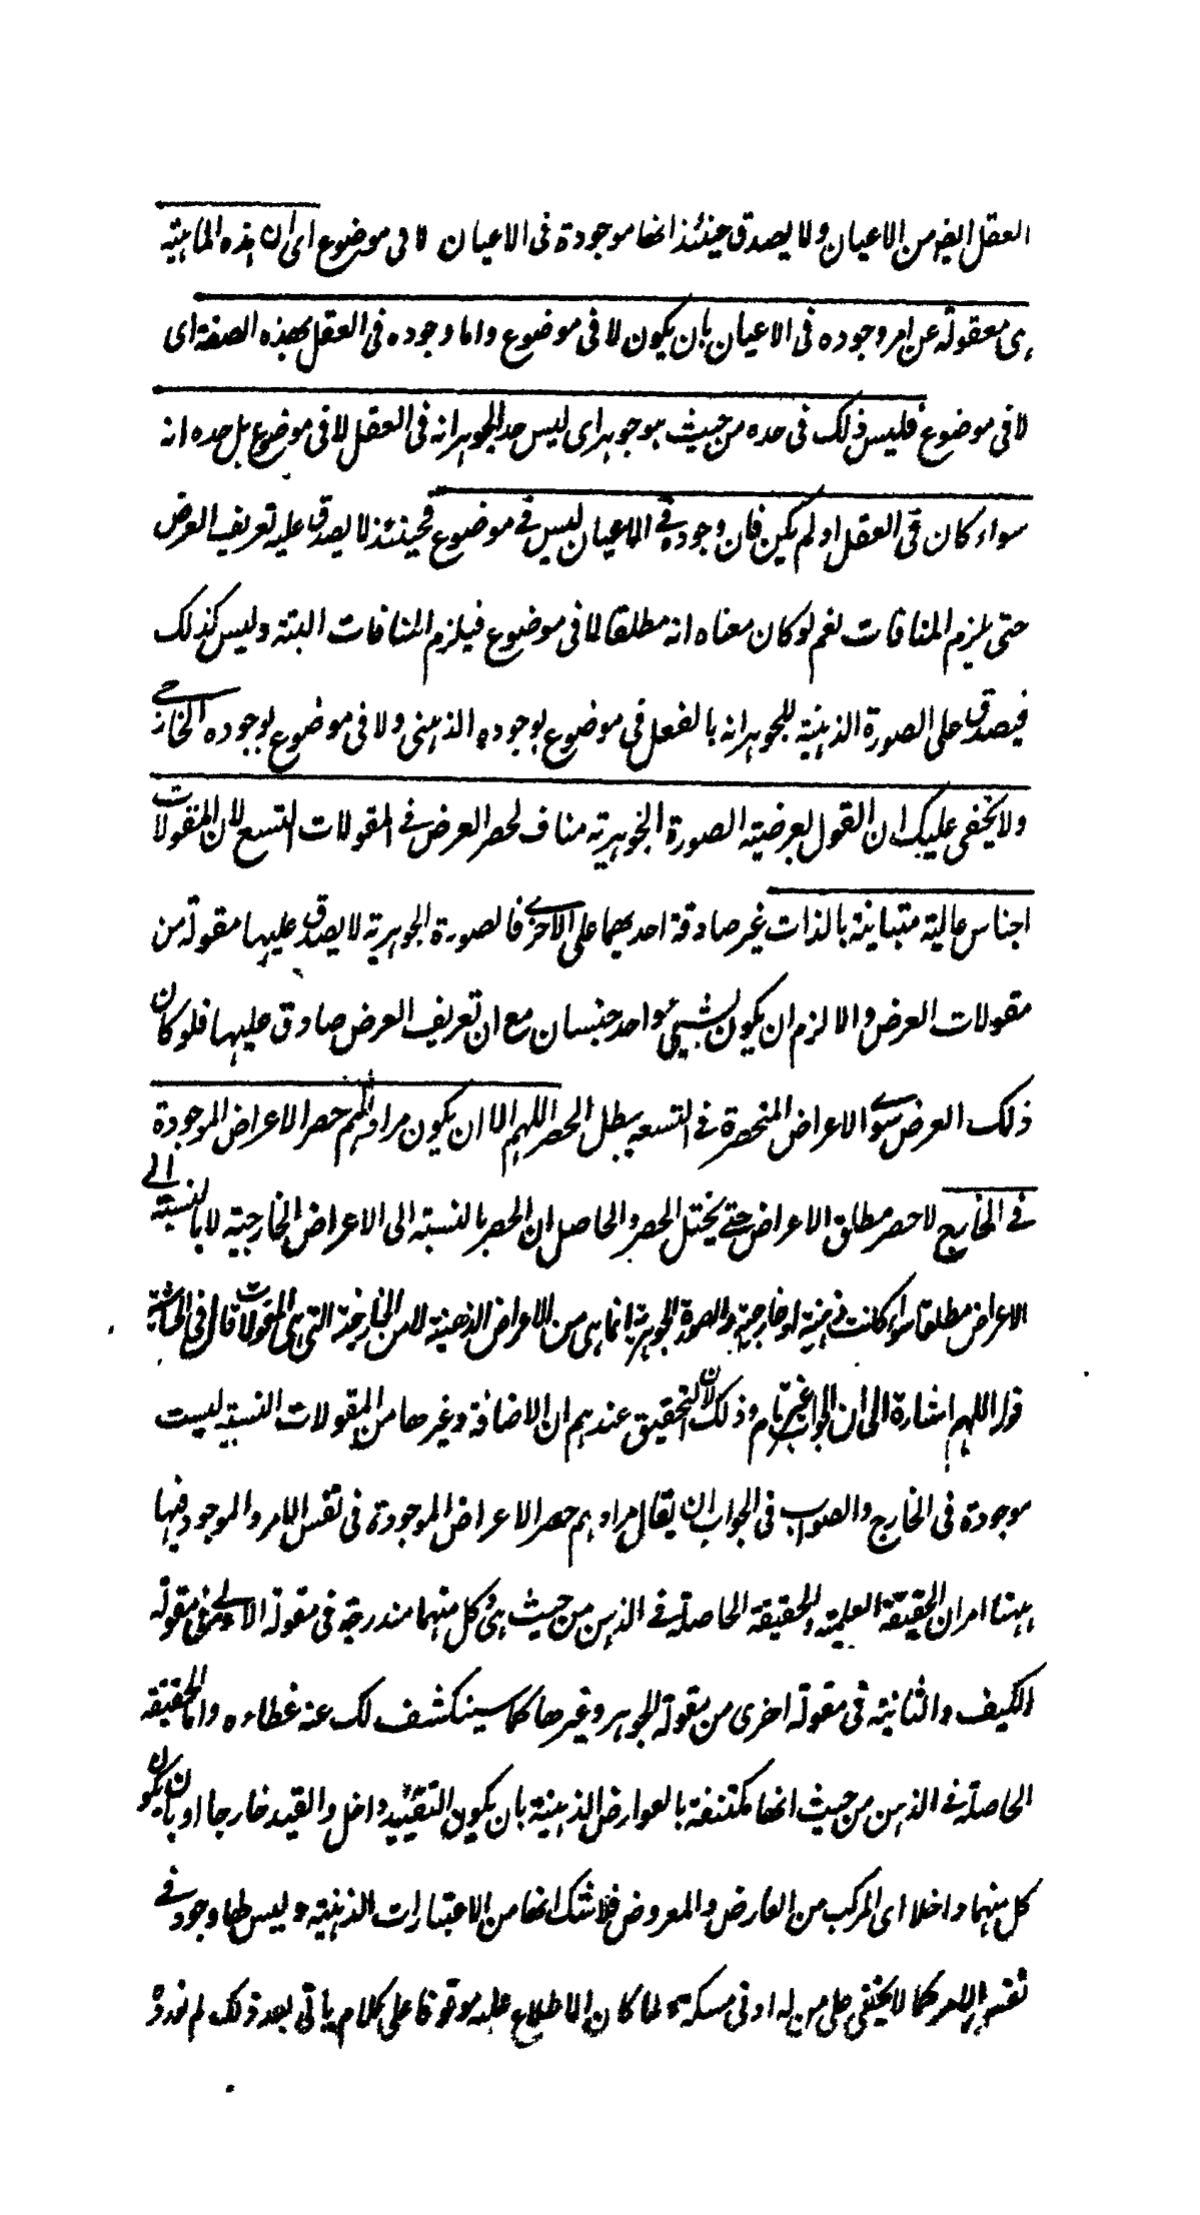 العقل ايضا من الاعيان ولا يصدق حينئذ انها موجودة فى الاعيان لا فى موضوع اى ان هذه الماهية
هى معقولة عن امر وجوده فى الاعيان بان يكون لا فى موضوع واما وجوده فى العقل بهذه الصفة اى
لا فى موضوع فليس ذلك فى حده من حيث هو جوهر اى ليس حد الجوهر انه فى العقل لا فى موضوع بل حده انه
سواء كان فى العقل او لم يكن فان وجوده فى الاعيان ليس فى موضوع فحينئذ لا يصدق عليه تعريف العرض
حتى يلزم المنافات نعم لو كان معناه انه مطلقا لا فى موضوع فيلزم المنافات البتة وليس كذلك
فيصدق على الصورة الذهنية للجوهر انه بالفعل فى موضوع بوجوده الذهنى ولا فى موضوع بوجوده الخارجى
ولا يخفى عليك ان القول بعرضية الصورة الجوهرية مناف لحصر العرض فى المقولات التسع لان المقولات
اجناس عالية متباينة بالذات غير صادقة احدهما على الاخرى فالصورة الجوهرية لا يصدق عليها مقولة من
مقولات العرض والا لزم ان يكون لشىء واحد جنسان مع ان تعريف العرض صادق عليها فلو كان
ذلك العرض سوى الاعراض المنحصرة فى التسعة يبطل الحصر اللهم الا ان يكون مرادهم حصر الاعراض الموجودة
فى الخارج لا حصر مطلق الاعراض حتى يختل الحصر والحاصل ان الحصر بالنسبة الى الاعراض الخارجية لا بالنسبة الى
الاعراض مطلقا سواء كانت ذهنية او خارجية والصورة الجوهرية انما هى من الاعراض الذهنية لا من الخارجية التى هى المقولات قال فى الحاشية
قوله اللهم اشارة الى ان الجواب غير تام وذلك لان التحقيق عندهم ان الاضافة وغيرها من المقولات النسبية ليست
موجودة فى الخارج والصواب فى الجواب ان يقال مرادهم حصر الاعراض الموجودة فى نفس الامر والموجود فيها
ههنا امران الحقيقة العلمية والحقيقة الحاصلة فى الذهن من حيث هى وكل منهما مندرجة فى مقولة الاولى فى مقولة
الكيف والثانية فى مقولة اخرى من مقولة الجوهر وغيرها كما سينكشف لك عنه غطاءه واما الحقيقة
الحاصلة فى الذهن من حيث انها مكتنفة بالعوارض الذهنية بان يكون التقييد داخلا والقيد خارجا او بان يكون
كل منهما داخلا اى المركب من العارض والمعروض فلا شك انها من الاعتبارات الذهنية وليس لها وجود فى
نفس الامر كما لا يخفى على من له ادنى مسكة لما كان الاطلاع عليه موقوفا على كلام ياتى بعد ذلك لم نورده